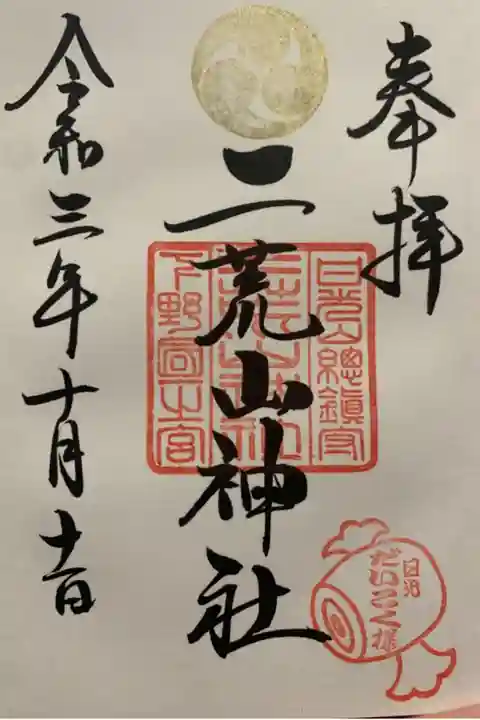 奉拝
日光山總鎮守
二荒山神社
下野國一之宮
日光
だいこく様
令和三年十月十一日